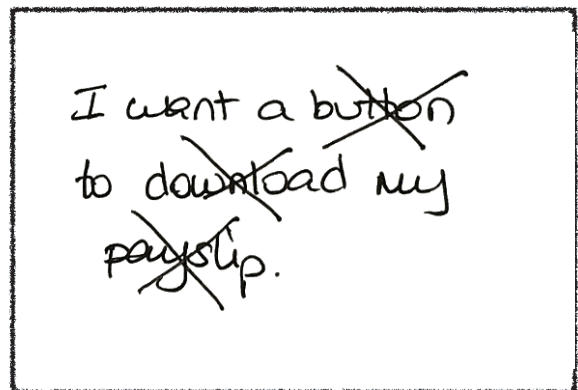 I want a button
to download my
payslip.